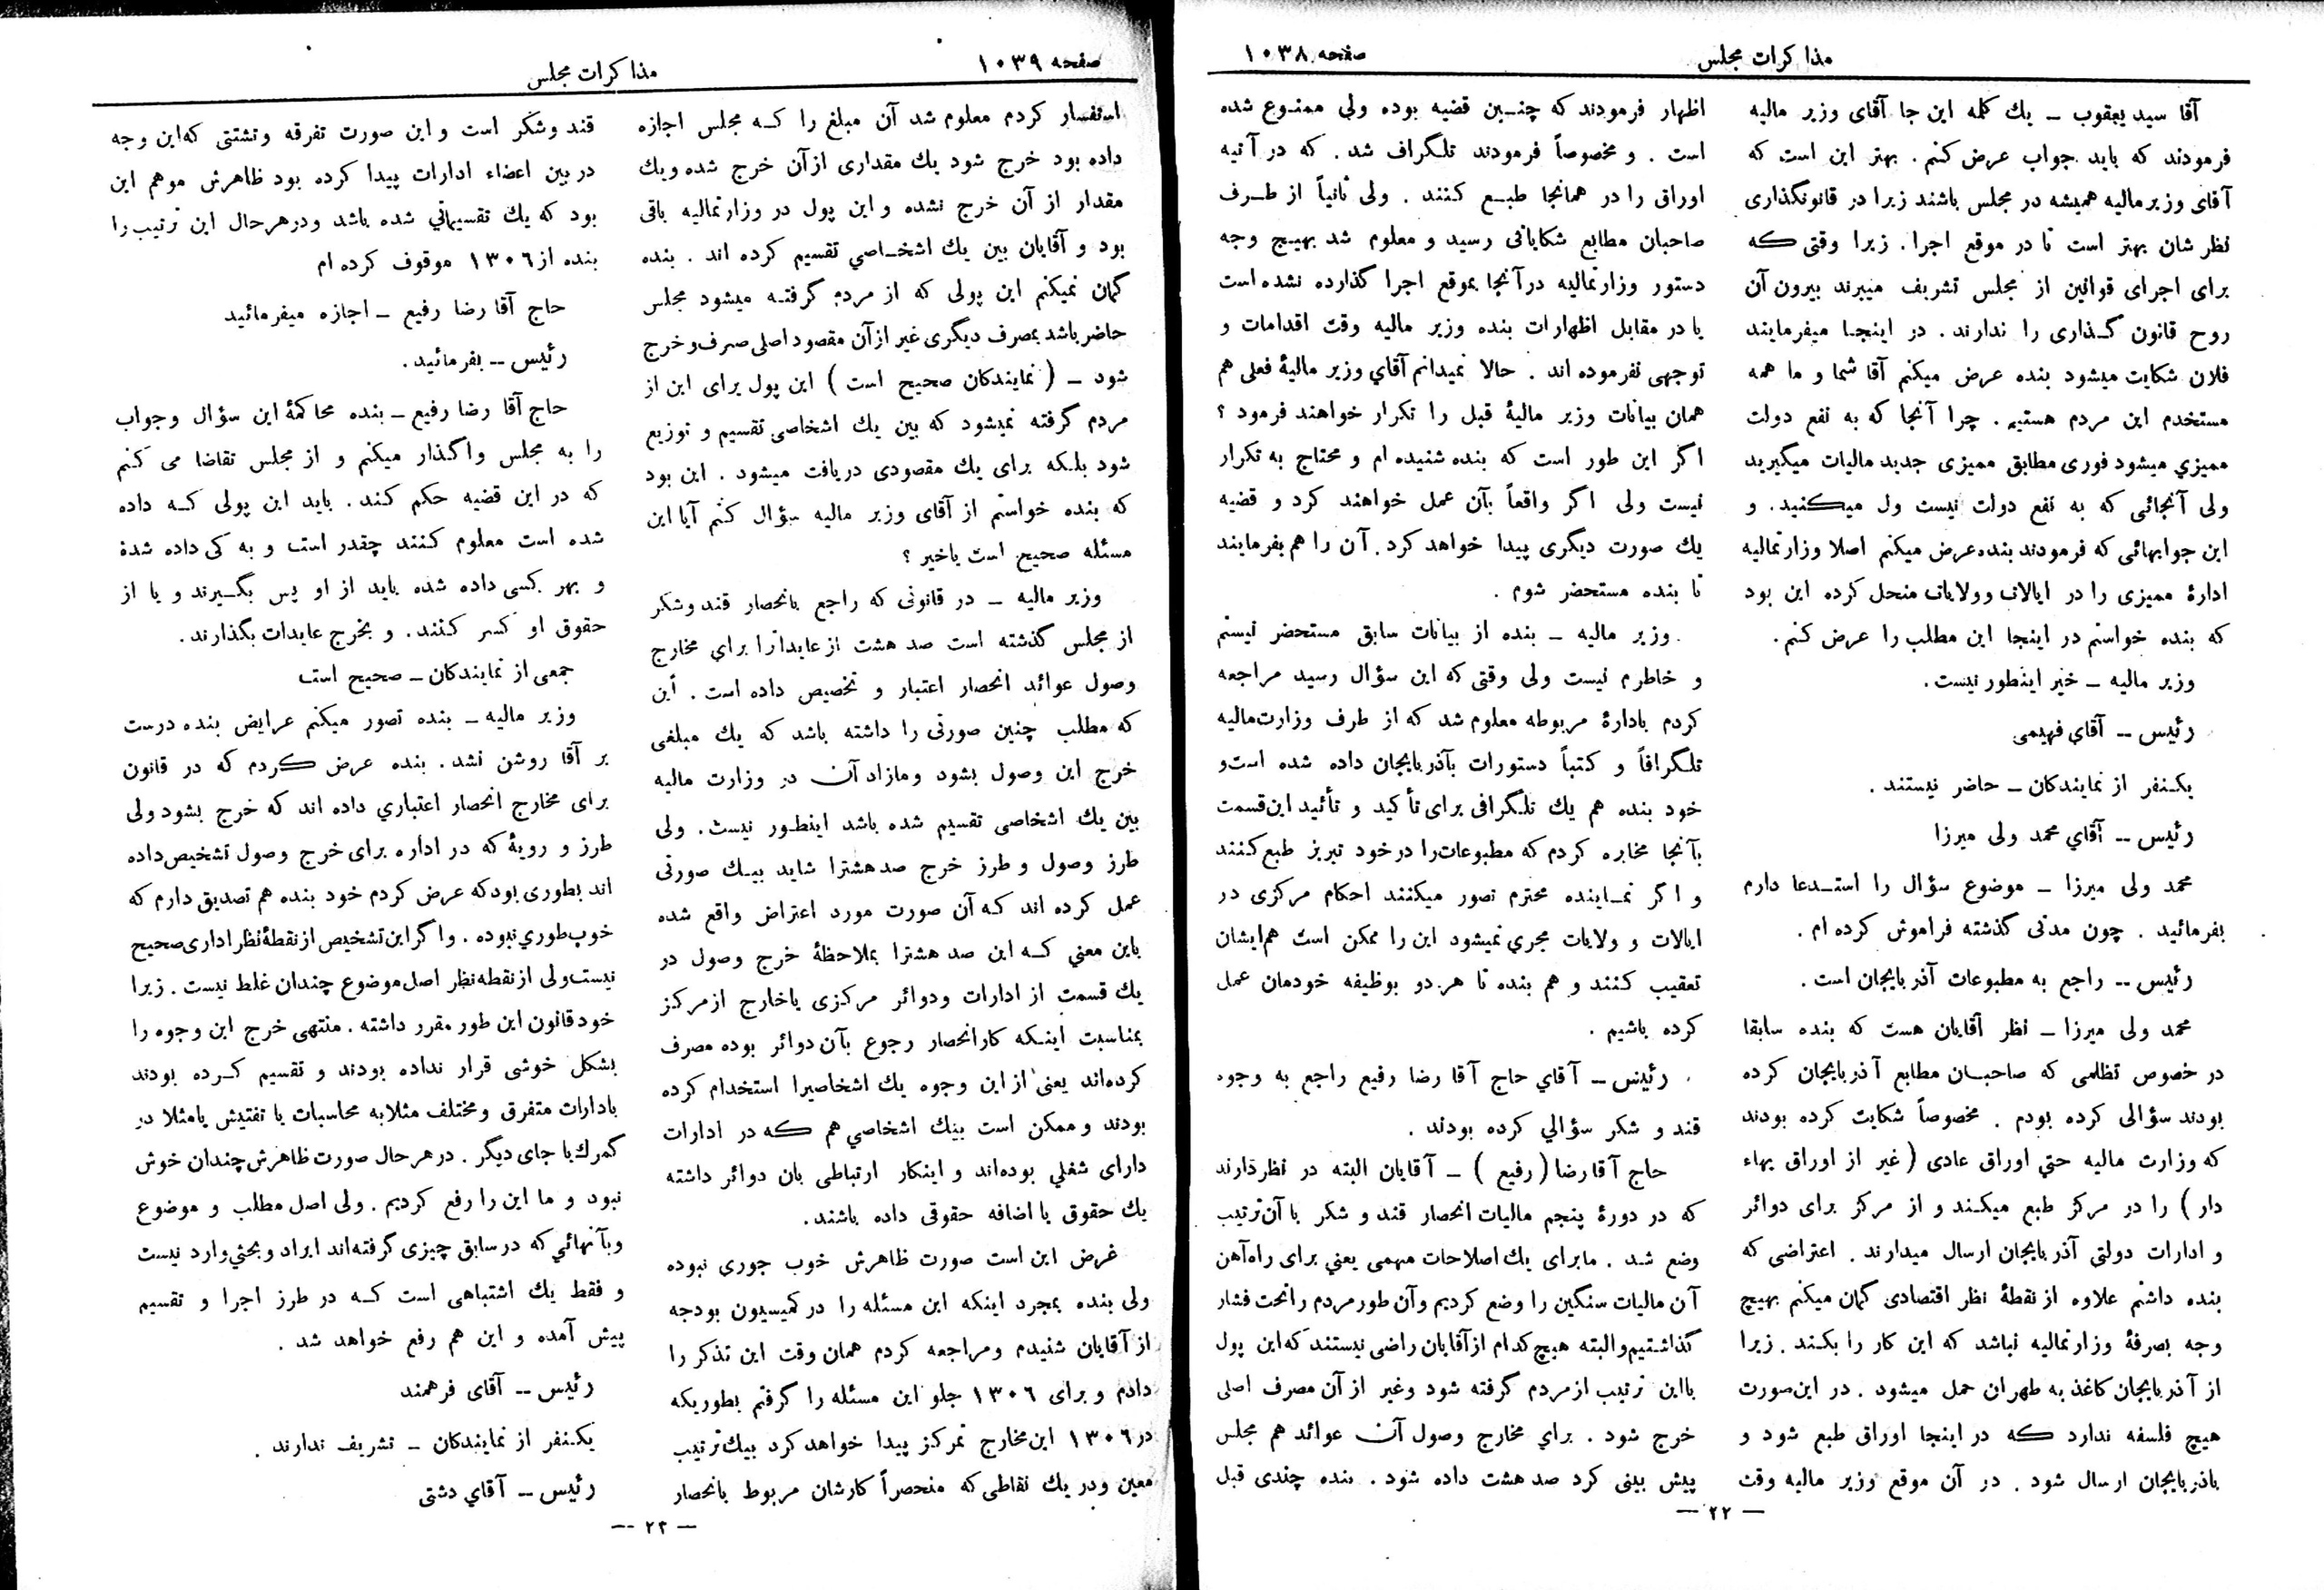 مذاکرات مجلس
صفحه ۱۰۳۸
آقا سید یعقوب ــ یك کلمه این جا آقای وزیر مالیه
فرمودند که باید جواب عرض کنم . بهتر این است که
آقای وزیر مالیه همیشه در مجلس باشند زیرا در قانونگذاری
نظر شان بهتر است تا در موقع اجرا . زیرا وقتی که
برای اجرای قوانین از مجلس تشریف میبرند بیرون آن
روح قانون گذاری را ندارند . در اینجا میفرمایند
فلان شکایت میشود بنده عرض میکنم آقا شما و ما همه
مستخدم این مردم هستیم . چرا آنجا که به نفع دولت
ممیزی میشود فوری مطابق ممیزی جدید مالیات میگیرید
ولی آنجائی که به نفع دولت نیست ول میکنید . و
این جوابهائی که فرمودند بنده عرض میکنم اصلا وزارتمالیه
ادارهٔ ممیزی را در ایالات وولایات منحل کرده این بود
که بنده خواستم در اینجا این مطلب را عرض کنم .
وزیر مالیه ــ خیر اینطور نیست .
رئیس ــ آقای فهیمی
یکنفر از نمایندکان ــ حاضر نیستند .
رئیس ــ آقای محمد ولی میرزا
محمد ولی میرزا ــ موضوع سؤال را استدعا دارم
بفرمائید . چون مدتی گذشته فراموش کرده ام .
رئیس ــ راجع به مطبوعات آذربایجان است .
محمد ولی میرزا ــ نظر آقایان هست که بنده سابقا
در خصوص تظلمی که صاحبان مطابع آذربایجان کرده
بودند سؤالی کرده بودم . مخصوصاً شکایت کرده بودند
که وزارت مالیه حتی اوراق عادی ( غیر از اوراق بهاء
دار ) را در مرکز طبع میکند و از مرکز برای دوائر
و ادارات دولتی آذربایجان ارسال میدارند . اعتراضی که
بنده داشتم علاوه از نقطهٔ نظر اقتصادی گمان میکنم بهیچ
وجه بصرفهٔ وزارتمالیه نباشد که این کار را بکند . زیرا
از آذربایجان کاغذ به طهران حمل میشود . در این صورت
هیچ فلسفه ندارد که در اینجا اوراق طبع شود و
باذربایجان ارسال شود . در آن موقع وزیر مالیه وقت
اظهار فرمودند که چنین قضیه بوده ولی ممنوع شده
است . و مخصوصاً فرمودند تلگراف شد . که در آتیه
اوراق را در همانجا طبع کنند . ولی ثانیاً از طرف
صاحبان مطابع شکایاتی رسید و معلوم شد بهیچ وجه
دستور وزارتمالیه درآنجا بموقع اجرا گذارده نشده است
یا در مقابل اظهارات بنده وزیر مالیه وقت اقدامات و
توجهی نفرموده اند . حالا نمیدانم آقای وزیر مالیهٔ فعلی هم
همان بیانات وزیر مالیهٔ قبل را تکرار خواهند فرمود ؟
اگر این طور است که بنده شنیده ام و محتاج به تکرار
نیست ولی اگر واقعاً بآن عمل خواهند کرد و قضیه
یك صورت دیگری پیدا خواهد کرد . آن را هم بفرمایند
تا بنده مستحضر شوم .
وزیر مالیه ــ بنده از بیانات سابق مستحضر نیستم
و خاطرم نیست ولی وقتی که این سؤال رسید مراجعه
کردم بادارهٔ مربوطه معلوم شد که از طرف وزارت مالیه
تلگرافاً و کتباً دستورات بآذربایجان داده شده است و
خود بنده هم یك تلگرافی برای تأکید و تأئید این قسمت
بآنجا مخابره کردم که مطبوعات را در خود تبریز طبع کنند
و اگر نماینده محترم تصور میکنند احکام مرکزی در
ایالات و ولایات مجری نمیشود این را ممکن است هم ایشان
تعقیب کنند و هم بنده تا هر دو بوظیفه خودمان عمل
کرده باشیم .
رئیس ــ آقای حاج آقا رضا رفیع راجع به وجوه
قند و شکر سؤالی کرده بودند .
حاج آقا رضا ( رفیع ) ــ آقایان البته در نظر دارند
که در دورهٔ پنجم مالیات انحصار قند و شکر با آن ترتیب
وضع شد . مابرای یك اصلاحات مهمی یعنی برای راه آهن
آن مالیات سنگین را وضع کردیم وآن طور مردم را تحت فشار
گذاشتیم والبته هیچ کدام از آقایان راضی نیستند که این پول
بااین ترتیب از مردم گرفته شود وغیر از آن مصرف اصلی
خرج شود . برای مخارج وصول آن عوائد هم مجلس
پیش بینی کرد صد هشت داده شود . بنده چندی قبل
— ۲۲ —
صفحه ۱۰۳۹
مذاکرات مجلس
استفسار کردم معلوم شد آن مبلغ را که مجلس اجازه
داده بود خرج شود یك مقداری از آن خرج شده ویك
مقدار از آن خرج نشده و این پول در وزارتمالیه باقی
بود و آقایان بین یك اشخاصی تقسیم کرده اند . بنده
گمان نمیکنم این پولی که از مردم گرفته میشود مجلس
حاضر باشد بمصرف دیگری غیر از آن مقصود اصلی صرف و خرج
شود ــ ( نمایندکان صحیح است ) این پول برای این از
مردم گرفته نمیشود که بین یك اشخاصی تقسیم و توزیع
شود بلکه برای یك مقصودی دریافت میشود . این بود
که بنده خواستم از آقای وزیر مالیه سؤال کنم آیا این
مسئله صحیح است یاخیر ؟
وزیر مالیه ــ در قانونی که راجع بانحصار قند وشکر
از مجلس گذشته است صد هشت از عایدات را برای مخارج
وصول عوائد انحصار اعتبار و تخصیص داده است . این
که مطلب چنین صورتی را داشته باشد که یك مبلغی
خرج این وصول بشود ومازاد آن در وزارت مالیه
بین یك اشخاصی تقسیم شده باشد اینطور نیست . ولی
طرز وصول و طرز خرج صد هشترا شاید بیك صورتی
عمل کرده اند که آن صورت مورد اعتراض واقع شده
باین معنی که این صد هشترا بملاحظهٔ خرج وصول در
یك قسمت از ادارات ودوائر مرکزی یاخارج از مرکز
بمناسبت اینکه کار انحصار رجوع بآن دوائر بوده مصرف
کرده‌اند یعنی از این وجوه یك اشخاصیرا استخدام کرده
بودند و ممکن است بیك اشخاصی هم که در ادارات
دارای شغلی بوده‌اند و اینکار ارتباطی بان دوائر داشته
یك حقوق یا اضافه حقوقی داده باشند .
غرض این است صورت ظاهرش خوب جوری نبوده
ولی بنده بمجرد اینکه این مسئله را در کمیسیون بودجه
از آقایان شنیدم ومراجعه کردم همان وقت این تذکر را
دادم و برای ۱۳۰۶ جلو این مسئله را گرفتم بطوریکه
در ۱۳۰۶ این مخارج تمرکز پیدا خواهد کرد بیك ترتیب
معین ودر یك نقاطی که منحصراً کارشان مربوط بانحصار
قند وشکر است و این صورت تفرقه وتشتتی که این وجه
در بین اعضاء ادارات پیدا کرده بود ظاهرش موهم این
بود که یك تقسیماتی شده باشد ودرهرحال این ترتیب را
بنده از ۱۳۰۶ موقوف کرده ام
حاج آقا رضا رفیع ــ اجازه میفرمائید
رئیس ــ بفرمائید .
حاج آقا رضا رفیع ــ بنده محاکمهٔ این سؤال وجواب
را به مجلس واگذار میکنم و از مجلس تقاضا می کنم
که در این قضیه حکم کند . باید این پولی که داده
شده است معلوم کنند چقدر است و به کی داده شدهٔ
و بهر کسی داده شده باید از او پس بگیرند و یا از
حقوق او کسر کنند . و بخرج عایدات بگذارند .
جمعی از نمایندکان ــ صحیح است
وزیر مالیه ــ بنده تصور میکنم عرایض بنده درست
بر آقا روشن نشد . بنده عرض کردم که در قانون
برای مخارج انحصار اعتباری داده اند که خرج بشود ولی
طرز و رویهٔ که در اداره برای خرج وصول تشخیص داده
اند بطوری بود که عرض کردم خود بنده هم تصدیق دارم که
خوب طوری نبوده . واگر این تشخیص از نقطهٔ نظر اداری صحیح
نیست ولی از نقطه نظر اصل موضوع چندان غلط نیست . زیرا
خود قانون این طور مقرر داشته . منتهی خرج این وجوه را
بشکل خوشی قرار نداده بودند و تقسیم کرده بودند
بادارات متفرق ومختلف مثلا به محاسبات یا تفتیش یامثلا در
گمرك یا جای دیگر . درهر حال صورت ظاهرش چندان خوش
نبود و ما این را رفع کردیم . ولی اصل مطلب و موضوع
وبآنهائی که در سابق چیزی گرفته‌اند ایراد و بحثی وارد نیست
و فقط یك اشتباهی است که در طرز اجرا و تقسیم
پیش آمده و این هم رفع خواهد شد .
رئیس ــ آقای فرهمند
یکنفر از نمایندکان ــ تشریف ندارند .
رئیس ــ آقای دشتی
— ۲۳ —